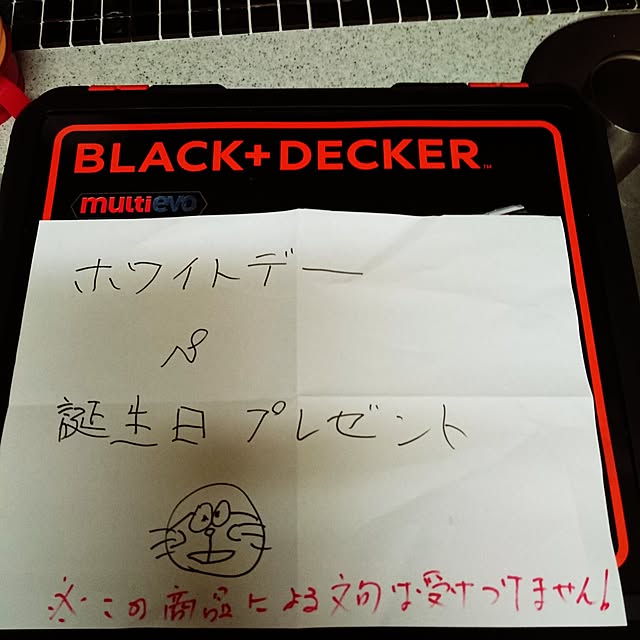 BLACK+DECKER™
multievo
ホワイトデー
&
誕生日 プレゼント
※この商品による文句は受けつけません!